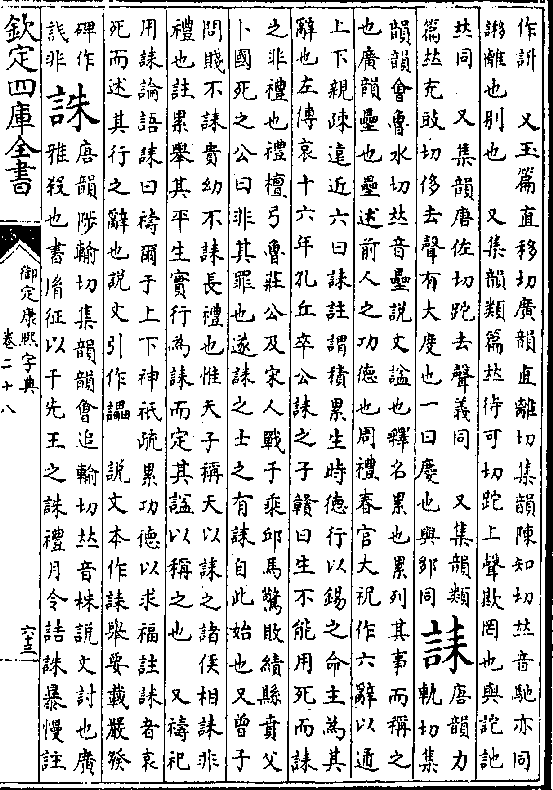 作訓　又玉篇直移切廣韻直離切集韻陳知切𠀤音馳亦同
謻離也別也　又集韻類篇𠀤待可切跎上聲欺罔也與詑訑
𠀤同　又集韻唐佐切跎去聲義同　又集韻類
篇𠀤充豉切侈去聲有大度也一曰慶也與同
誄
唐韻力
軌切集
韻韻會魯水切𠀤音壘說文諡也釋名累也累列其事而稱之
也廣韻壘也壘述前人之功德也周禮春官大祝作六辭以通
上下親疎遠近六曰誄註謂積累生時德行以錫之命主為其
辭也左傳哀十六年孔丘卒公誄之子贛曰生不能用死而誄
之非禮也禮檀弓魯莊公及宋人戰于乘邱馬驚敗績縣賁父
卜國死之公曰非其罪也遂誄之士之有誄自此始也又曾子
問賤不誄貴幼不誄長禮也惟天子稱天以誄之諸侯相誄非
禮也註累舉其平生實行為誄而定其諡以稱之也　又禱祀
用誄論語誄曰禱爾于上下神祇疏累功德以求福註誄者哀
死而述其行之辭也說文引作讄　說文本作誄舉要載嚴發
碑作
非
誅
唐韻陟輸切集韻韻會追輸切𠀤音株說文討也廣
雅殺也書胤征以干先王之誅禮月令詰誅暴慢註
欽定四庫全書
御定康熙字典
卷二十八
六十三